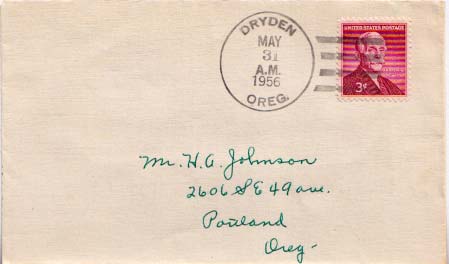 DRYDEN
MAY
31
A.M.
1956
OREG.
UNITED STATES POSTAGE
3¢
Mr. H. A. Johnson
2606 S E 49 ave.
Portland
Oreg-